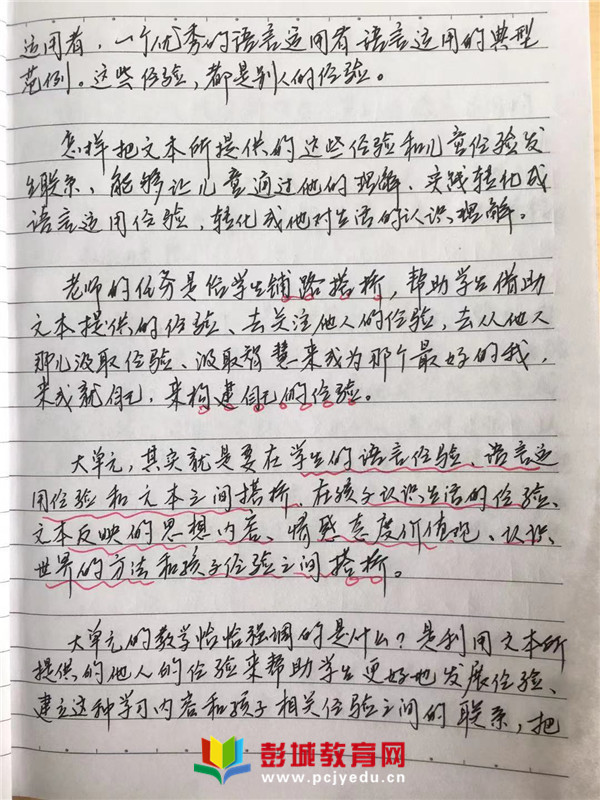 运用者，一个优秀的语言运用者语言运用的典型
范例。这些经验，都是别人的经验。
怎样把文本所提供的这些经验和儿童经验发
生联系、能够让儿童通过他的理解、实践转化成
语言运用经验，转化成他对生活的认识理解。
老师的任务是给学生铺路搭桥，帮助学生借助
文本提供的经验、去关注他人的经验，去从他人
那儿汲取经验、汲取智慧来成为那个最好的我，
来成就自己，来构建自己的经验。
大单元，其实就是要在学生的语言经验、语言运
用经验和文本之间搭桥，在孩子认识生活的经验、
文本反映的思想内容、情感态度价值观、认识
世界的方法和孩子经验之间搭桥。
大单元的教学恰恰强调的是什么？是利用文本所
提供的他人的经验来帮助学生更好地发展经验、
建立这种学习内容和孩子相关经验之间的联系，把
彭城教育网
www.pcjyedu.cn